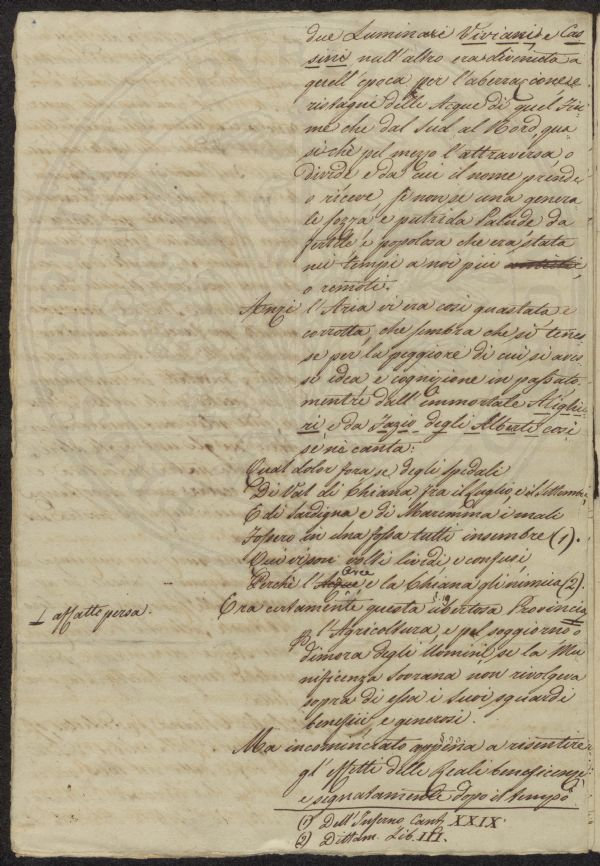 due Luminari Viviani, e Cas
sini null'altro era divenuta a
quell'epoca per l'aberrazione, e
ristagni delle Acque di quel Fiu
me che dal Sud al Nord qua
si chè pel mezzo l'attraversa, o
divide e da cui il nome prende
o riceve, se non se una genera
le sozza e putrida Palude da
fertile e popolosa che era stata
nei tempi a noi più
o remoti.
Anzi l'Aria vi era così guastata e
corrotta, che sembra che si tenes
se per la peggiore di cui si aves
se idea e cognizione in passato,
mentre dall'immortale Alighie
ri e da Fazio degli Alberti così
se ne canta:
Qual dolor fora se degli spedali
Di Val di Chiana fra il Luglio, e il Settembre,
E di Sardigna e di Maremma i mali
Fossero in una fossa tutti insembre (1).
Quivi son volti lividi e confusi,
Perchè l'Aere e la Chiana gli nimica (2).
Era certamente questa ubertosa Provincia
⊥ affatto persa.
p l'Agricoltura, e pel soggiorno o
dimora degli Uomini, se la Mu
nificenza Sovrana non rivolgeva
sopra di essa i suoi sguardi
benefici, e generosi.
Ma incominciato appena a risentire
gl'effetti delle Reali beneficenze
e segnatamente dopo il tempo
(1) Dell'Inferno Cant. XXIX.
(2) Dittam. Lib. III.